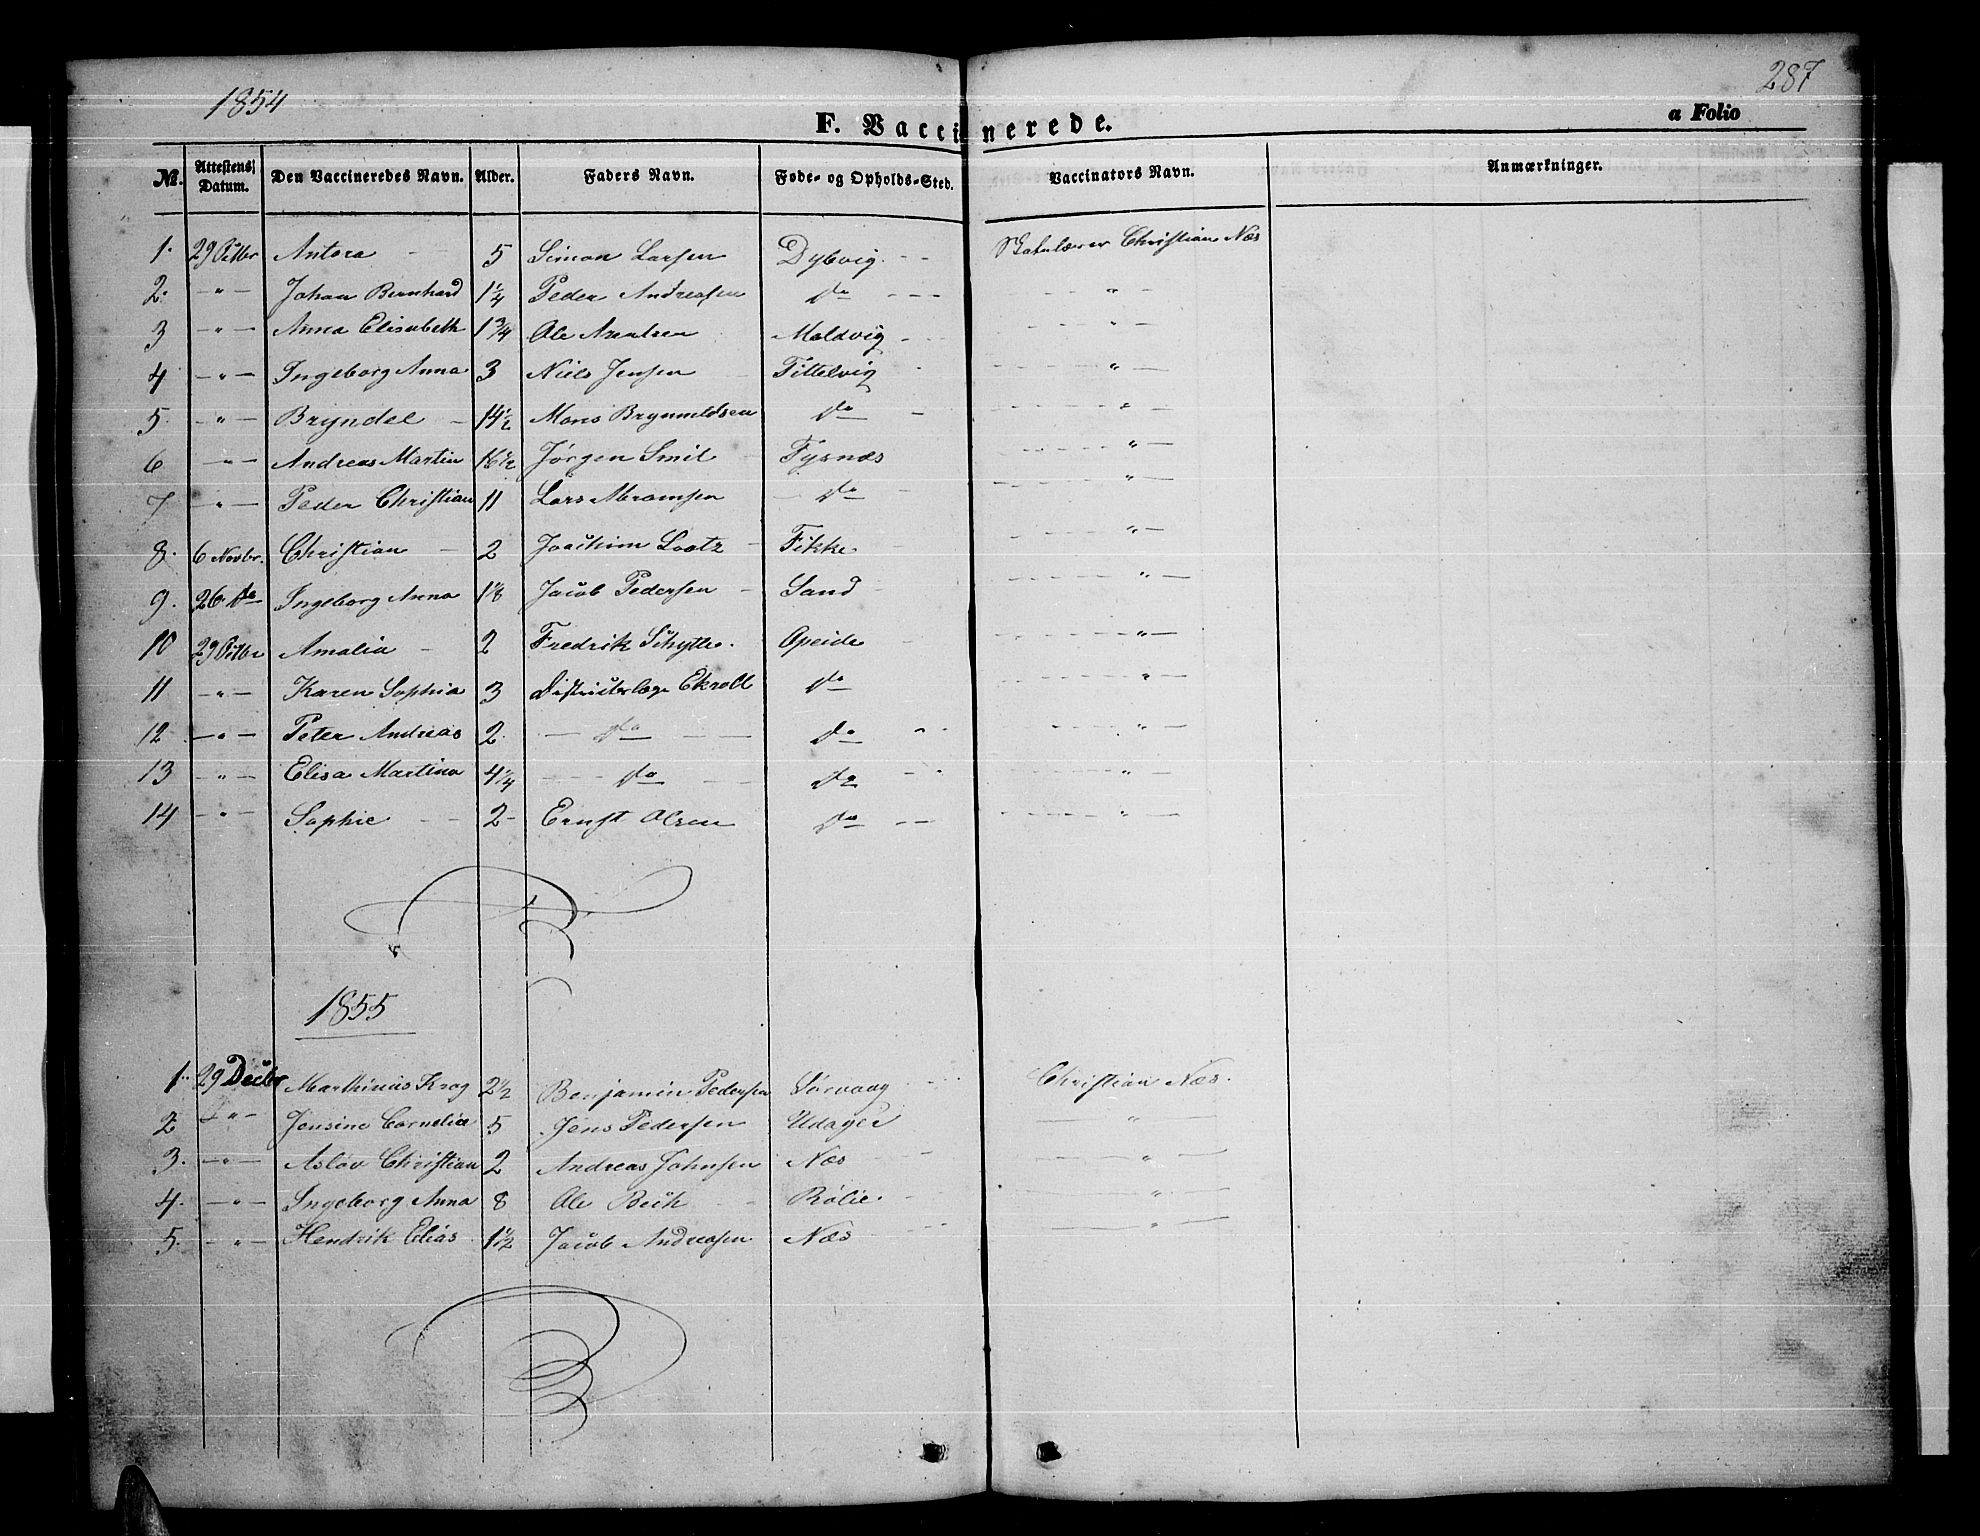 1854
287
F. Vaccinerede.
a Folio
No. Attestens Datum. Den Vaccineredes Navn. Alder. Faders Navn. Føde- og Opholds-Sted. Vaccinators Navn. Anmærkninger.
1. 29 Octbr Antora 5 Simon Larsen Dybvig Christian Næs
2. " Johan Bernhard 1 1/4 Peder Andreasen do "
3 " Anna Elisabeth 1 3/4 Ole Arentsen Moldvig "
4 " Ingeborg Anna 3 Niels Jensen Tittelvig "
5 " Bryndel 14 1/2 Mons Brynnildsen do "
6 " Andreas Martin 16 1/2 Jørgen Smit Fysnæs "
7 " Peder Christian 11 Lars Abramsen do "
8. 6 Novbr. Christian 2 Joachim Lootz Fikke "
9. 26. do Ingeborg Anna 1 1/8 Jacob Pedersen Sand "
10 29 Octbr Amalia 2 Fredrik Schytte. Opeide "
11 " Karen Sophia 3 Districtslæge Ekroll do "
12 " Peter Andreas 2 do do "
13 " Elisa Martina 4 1/4 do do "
14 " Sophie 2 Ernst Olsen do "
1855
1. 29 Decbr Marthinus Krog 2 1/2 Benjamin Pedersen Sørvaag Christian Næs.
2 " Jensine Cornelia 5 Jens Pedersen "
3. " Asløv Christian 2 Andreas Johnsen Næs "
4. " Ingeborg Anna 8 Ole Bech Rølie. "
5. " Hendrik Elias 1 1/2 Jacob Andreasen Næs "